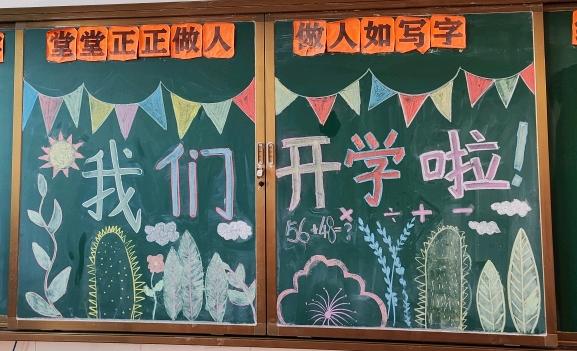 堂堂正正做人 做人如写字
我们开学啦!
× ÷ + −
56+48=?